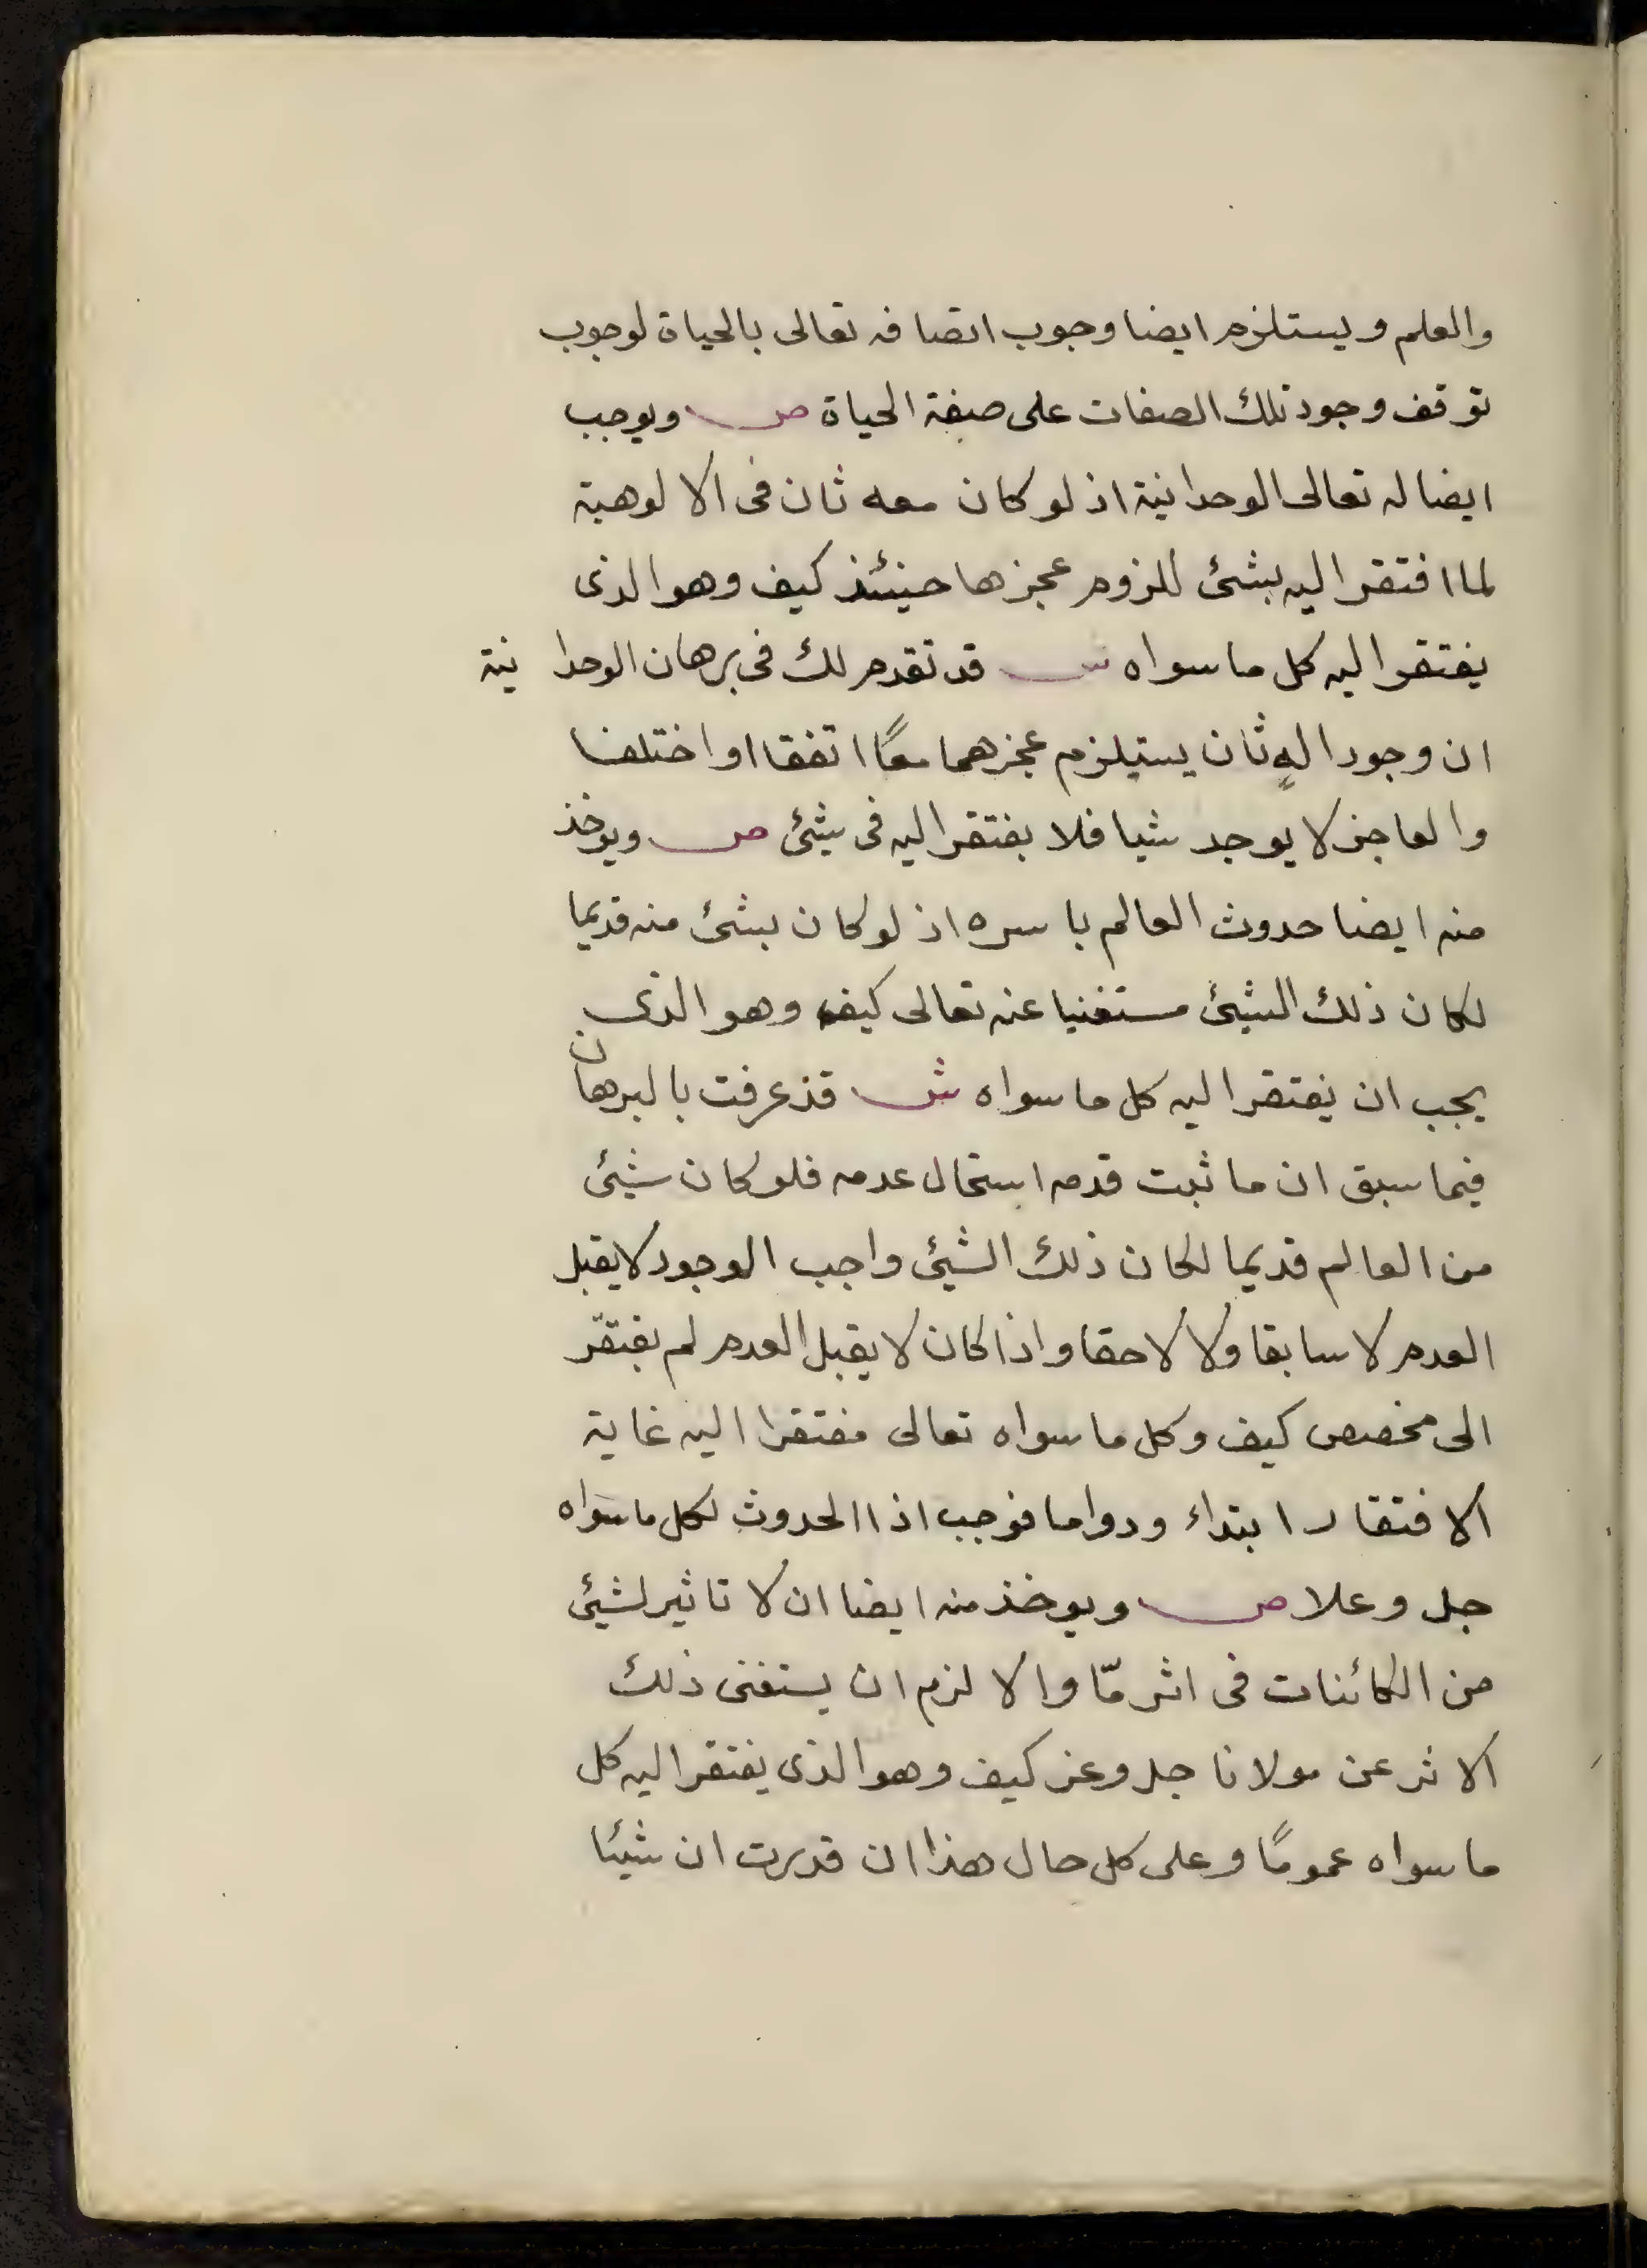 والعلم ويستلزم ايضا وجوب اتصافه تعالى بالحياة لوجوب
توقف وجود تلك الصفات على صفة الحياة ص ويوجب
ايضا له تعالى الوحدانية اذ لو كان معه ثان فى الالوهية
لما افتقر اليه بشئ للزوم عجزها حينئذ كيف وهو الذى
يفتقر اليه كل ما سواه ش قد تقدم لك فى برهان الوحدانية
ان وجود الهٍ ثان يستيلزم عجزهما معًا اتفقا او اختلفا
والعاجز لا يوجد شيا فلا يفتقر اليه فى شئ ص ويوخذ
منه ايضا حدوث العالم باسره اذ لو كان بشئ منه قديما
لكان ذلك الشيئ مستغنيا عنه تعالى كيف وهو الذى
يجب ان يفتقر اليه كل ما سواه ش قذ عرفت بالبرهان
فيما سبق ان ما ثبت قدمه استحال عدمه فلو كان شيئ
من العالم قديما لكان ذلك الشيئ واجب الوجود لا يقبل
العدم لا سابقا ولا لاحقا واذا كان لا يقبل العدم لم يفتقر
الى مخصص كيف وكل ما سواه تعالى مفتقرا اليه غاية
الافتقار ابتداء ودواما فوجب اذا الحدوث لكل ما سواه
جل وعلا ص ويوخذ منه ايضا ان لا تاثير لشيئ
من الكائنات فى اثر مّا والا لزم ان يستغنى ذلك
الاثر عن مولانا جل وعز كيف وهو الذى يفتقر اليه كل
ما سواه عمومًا وعلى كل حال هذا ان قدرت ان شيئا